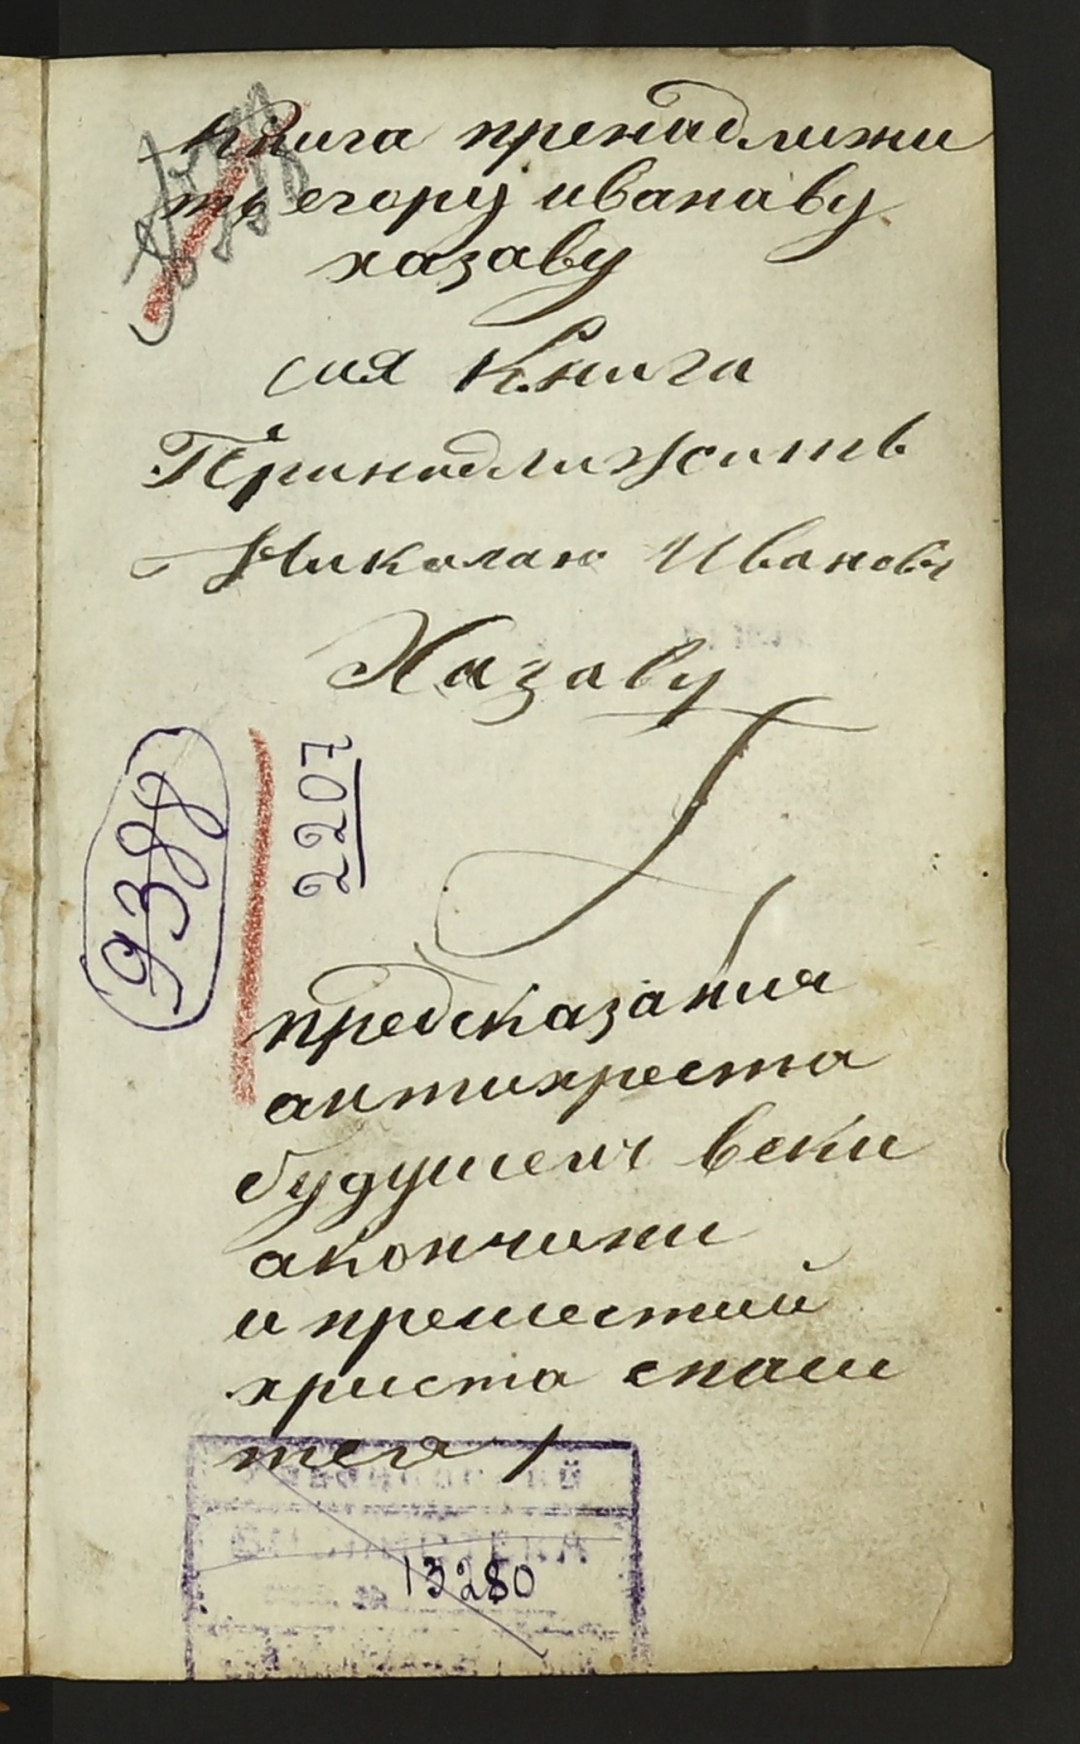 книга пренадлижи
тъ егору иванаву
хазаву
сия Книга
Принадлижить
Николаю Иванову
Хазаву
9388
2207
предсказания
антихреста
будушем веки
акончини
и прешествий
христа спаси
теля
13280